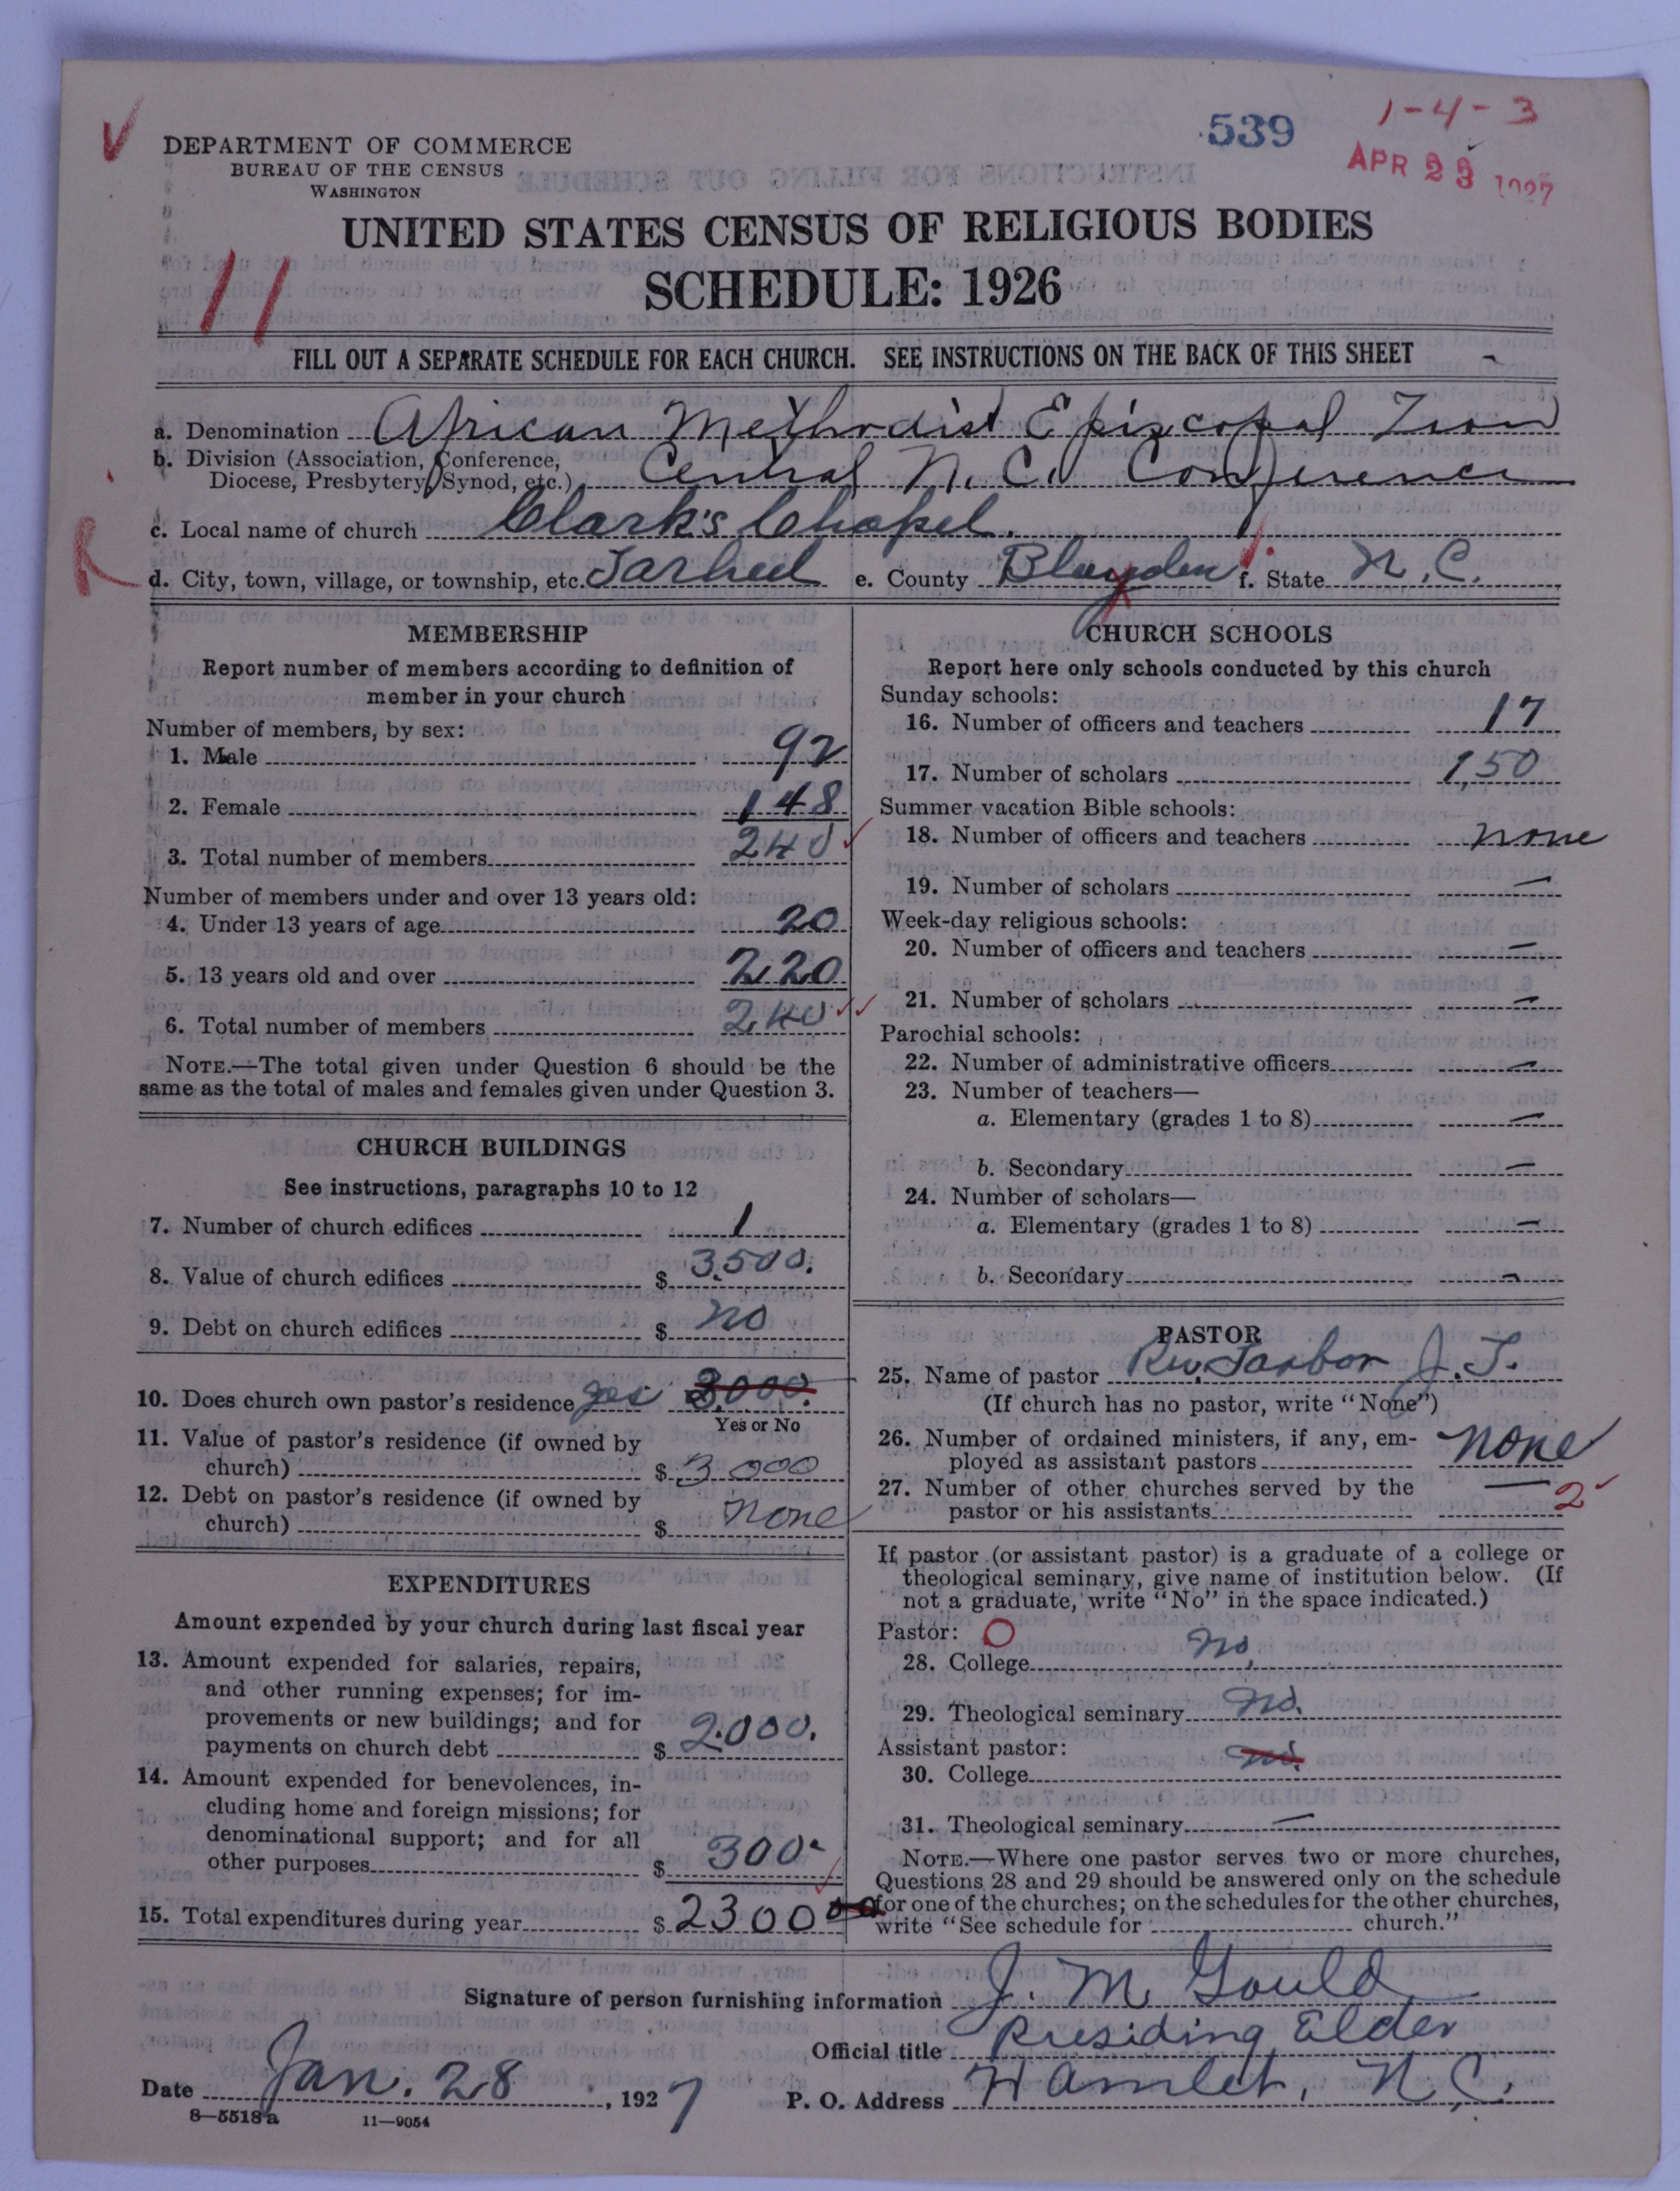 539
1-4-3
APR 23 1927
DEPARTMENT OF COMMERCE
BUREAU OF THE CENSUS
WASHINGTON
UNITED STATES CENSUS OF RELIGIOUS BODIES
SCHEDULE: 1926
11
FILL OUT A SEPARATE SCHEDULE FOR EACH CHURCH. SEE INSTRUCTIONS ON THE BACK OF THIS SHEET
a. Denomination African Methodist Episcopal Zion
b. Division (Association, Conference,
Diocese, Presbytery, Synod, etc.) Central N.C. Conference
c. Local name of church Clark's Chapel.
d. City, town, village, or township, etc. Tarheel e. County Blayden f. State N.C.
MEMBERSHIP
Report number of members according to definition of
member in your church
Number of members, by sex:
1. Male 92
2. Female 148
3. Total number of members 240
Number of members under and over 13 years old:
4. Under 13 years of age 20
5. 13 years old and over 220
6. Total number of members 240
NOTE.—The total given under Question 6 should be the
same as the total of males and females given under Question 3.
CHURCH BUILDINGS
See instructions, paragraphs 10 to 12
7. Number of church edifices 1
8. Value of church edifices $ 3500.
9. Debt on church edifices $ no
10. Does church own pastor's residence yes 3000.
Yes or No
11. Value of pastor's residence (if owned by
church) $ 3000
12. Debt on pastor's residence (if owned by
church) $ none
EXPENDITURES
Amount expended by your church during last fiscal year
13. Amount expended for salaries, repairs,
and other running expenses; for im-
provements or new buildings; and for
payments on church debt $ 2000.
14. Amount expended for benevolences, in-
cluding home and foreign missions; for
denominational support; and for all
other purposes $ 300
15. Total expenditures during year $ 2300
CHURCH SCHOOLS
Report here only schools conducted by this church
Sunday schools:
16. Number of officers and teachers 17
17. Number of scholars 150
Summer vacation Bible schools:
18. Number of officers and teachers none
19. Number of scholars —
Week-day religious schools:
20. Number of officers and teachers —
21. Number of scholars —
Parochial schools:
22. Number of administrative officers —
23. Number of teachers—
a. Elementary (grades 1 to 8) —
b. Secondary —
24. Number of scholars—
a. Elementary (grades 1 to 8) —
b. Secondary —
PASTOR
25. Name of pastor Rev. Tarbor J.T.
(If church has no pastor, write "None")
26. Number of ordained ministers, if any, em-
ployed as assistant pastors none
27. Number of other churches served by the
pastor or his assistants — 2
If pastor (or assistant pastor) is a graduate of a college or
theological seminary, give name of institution below. (If
not a graduate, write "No" in the space indicated.)
Pastor:
28. College no,
29. Theological seminary no.
Assistant pastor:
30. College no.
31. Theological seminary —
NOTE.—Where one pastor serves two or more churches,
Questions 28 and 29 should be answered only on the schedule
for one of the churches; on the schedules for the other churches,
write "See schedule for church."
Signature of person furnishing information J. M. Gould
Official title Presiding Elder
Date Jan. 28, 1927 P. O. Address Hamlet, N.C.
8—5518 a 11—9054